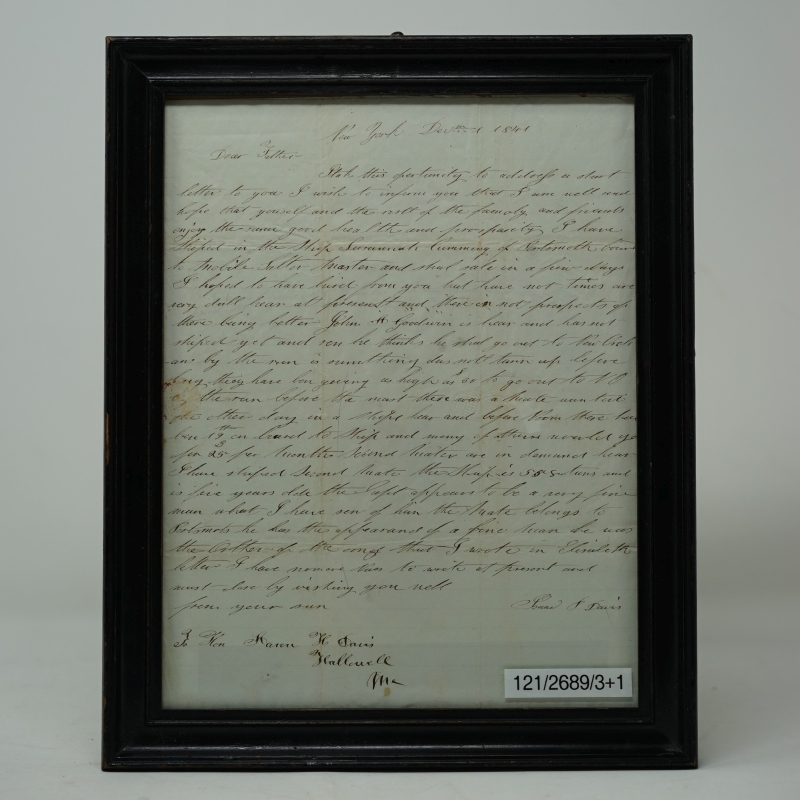 New York Dec 1841
Dear Father
I tak this portunity to address a short
letter to you I wish to inform you that I am well and
hope that yourself and the rest of the famely and friends
enjoy the same good health and prosparity I have
shiped in the Ship Cumming of Portsmoth boun
to Mobile master and shal sale in a few days
I hoped to have hird from you but have not times are
very dull hear at present and there is not prospects of
there being better John H Goodwin is hear and has not
shiped yet and ses he thinks he shal go out to New
by the run is sumthing dus not turn up before
long they have ben giving as high as to go out to N O
by the run before the mast there was a mate wanted
the other day in a ship hear and before noon there had
ben 19 on board to ship and many of them would go
for 25 per month second mates are in demand hear
I have shiped second mate the Ship is 558 tuns and
is five years olde the Capt appears to be a very fine
man what I have sen of him the mate belongs to
Portsmoth he has the appearance of a fine man he was
the of the that I wrote in Elisabeth
letter I have no more to write at present and
must close by wishing you well
from your son Isaac F Davis
To Hon Aaron H Davis
Hallowell
Me
121/2689/3+1